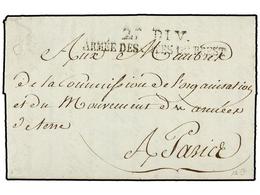 2E DIV.
ARMÉE DES CÔTES DE BREST
Aux Membres
de la Commission de l'organisation
et du Mouvement des armées
de terre
A Paris